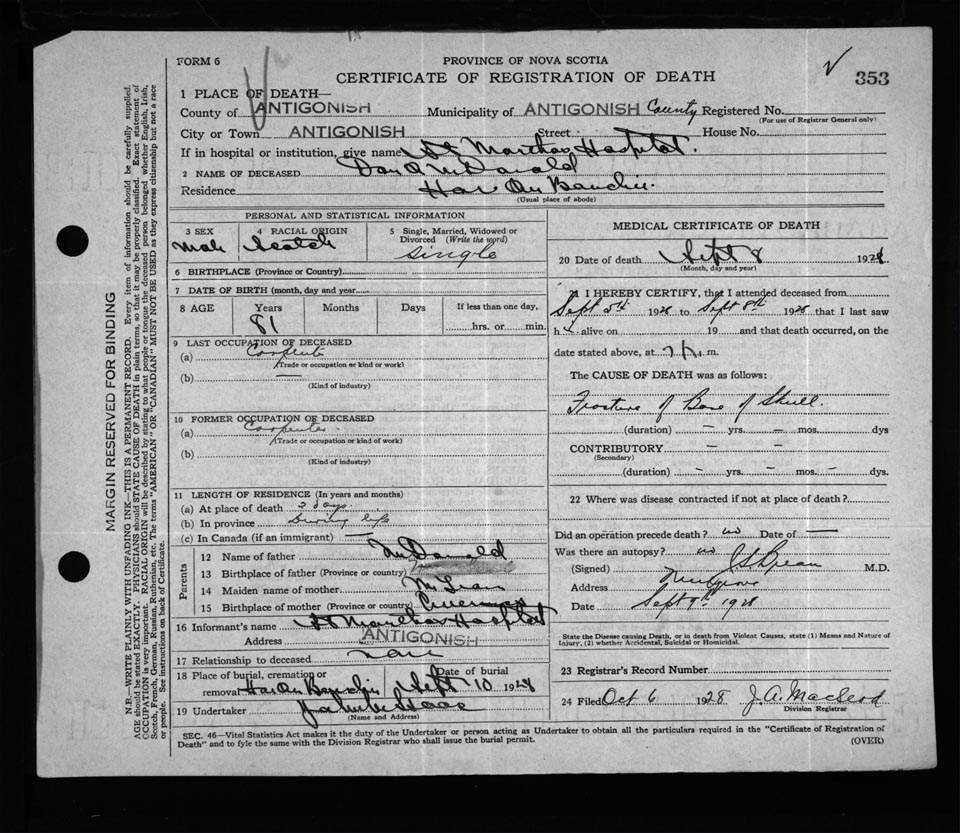 FORM 6
PROVINCE OF NOVA SCOTIA
CERTIFICATE OF REGISTRATION OF DEATH
353
1 PLACE OF DEATH—
County of ANTIGONISH Municipality of ANTIGONISH County Registered No.
(For use of Registrar General only)
City or Town ANTIGONISH Street House No.
If in hospital or institution, give name St Marthas Hospital.
2 NAME OF DECEASED
Residence Har Au Bouchie.
(Usual place of abode)
PERSONAL AND STATISTICAL INFORMATION
3 SEX 4 RACIAL ORIGIN 5 Single, Married, Widowed or Divorced (Write the word)
Male Scotch single
6 BIRTHPLACE (Province or Country)
7 DATE OF BIRTH (month, day and year)
8 AGE Years Months Days If less than one day,
81 hrs. or min.
9 LAST OCCUPATION OF DECEASED
(a) Carpenter
(Trade or occupation or kind or work)
(b) —
(Kind of industry)
10 FORMER OCCUPATION OF DECEASED
(a) Carpenter
(Trade or occupation or kind of work)
(b)
(Kind of industry)
11 LENGTH OF RESIDENCE (In years and months)
(a) At place of death 3 days.
(b) In province During life
(c) In Canada (if an immigrant) —
Parents
12 Name of father McDonald
13 Birthplace of father (Province or country)
14 Maiden name of mother McLean
15 Birthplace of mother (Province or country)
16 Informant's name St Marthas Hospital
Address ANTIGONISH
17 Relationship to deceased
18 Place of burial, cremation or removal Har Au Bouchie Date of burial Sept 10 1928
19 Undertaker
(Name and Address)
MEDICAL CERTIFICATE OF DEATH
20 Date of death Sept 8 1928
(Month, day and year)
21 I HEREBY CERTIFY, that I attended deceased from
Sept 5th 1928 to Sept 8th 1928 that I last saw
h alive on 19 and that death occurred, on the
date stated above, at m.
The CAUSE OF DEATH was as follows:
Fracture of Base of Skull.
(duration) — yrs. — mos. dys
CONTRIBUTORY — —
(Secondary)
(duration) — yrs. — mos. — dys.
22 Where was disease contracted if not at place of death?
Did an operation precede death? no Date of —
Was there an autopsy? no
(Signed) M.D.
Address Mulgrave
Date Sept 9th 1928
State the Disease causing Death, or in death from Violent Causes, state (1) Means and Nature of
Injury, (2) whether Accidental, Suicidal or Homicidal.
23 Registrar's Record Number
24 Filed Oct 6 1928 J. A. Macleod
Division Registrar
SEC. 46—Vital Statistics Act makes it the duty of the Undertaker or person acting as Undertaker to obtain all the particulars required in the "Certificate of Registration of
Death" and to fyle the same with the Division Registrar who shall issue the burial permit.
(OVER)
MARGIN RESERVED FOR BINDING
N.B.—WRITE PLAINLY WITH UNFADING INK—THIS IS A PERMANENT RECORD. Every item of information should be carefully supplied.
AGE should be stated EXACTLY. PHYSICIANS should STATE CAUSE OF DEATH in plain terms, so that it may be properly classified. Exact statement of
OCCUPATION is very important. RACIAL ORIGIN will be described by stating to what people or tongue the deceased person belonged whether English, Irish,
Scotch, French, German, Russian, Ruthenian, etc. The terms "AMERICAN" or "CANADIAN" MUST NOT BE USED as they express citizenship but not a race
or people. See instructions on back of Certificate.